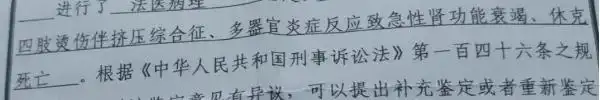 进行了 法医病理
四肢烫伤伴挤压综合征、多器官炎症反应致急性肾功能衰竭、休克
死亡 。根据《中华人民共和国刑事诉讼法》第一百四十六条之规
鉴定意见有异议，可以提出补充鉴定或者重新鉴定